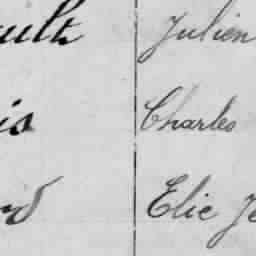 ault Julien
is Charles
nd Elie Je